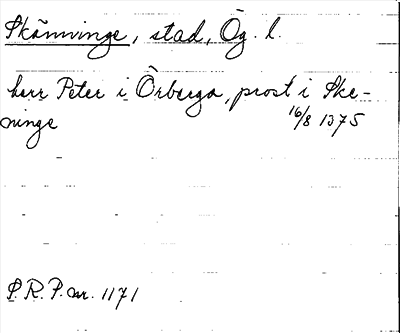 Skänninge, stad, Ög. l.
herr Peter i Örberga, prost i Ske-
ninge 16/8 1375
P.R.P. nr. 1171